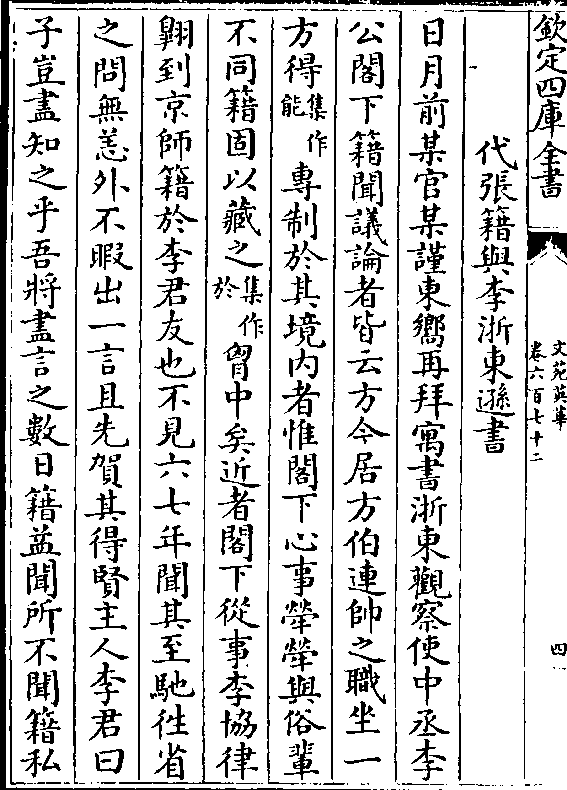 欽定四庫全書
文苑英華
卷六百七十二
四
代張籍與李浙東遜書
日月前某官某謹東嚮再拜寓書浙東觀察使中丞李
公閣下籍聞議論者皆云方今居方伯連帥之職坐一
方得集作能専制於其境内者惟閣下心事犖犖與俗輩
不同籍固以藏之集作於胷中矣近者閣下從事李協律
翺到京師籍於李君友也不見六七年聞其至馳徃省
之問無恙外不暇出一言且先賀其得賢主人李君曰
子豈盡知之乎吾將盡言之數日籍益聞所不聞籍私